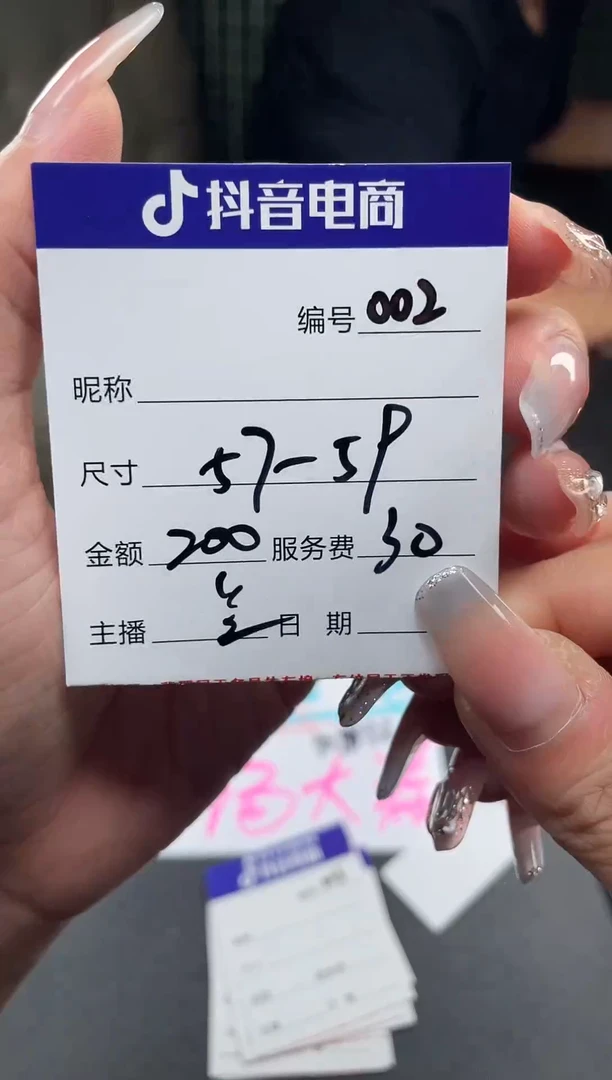 抖音电商
编号 002
昵称
尺寸 57-59
金额 200 服务费 30
主播 日 期